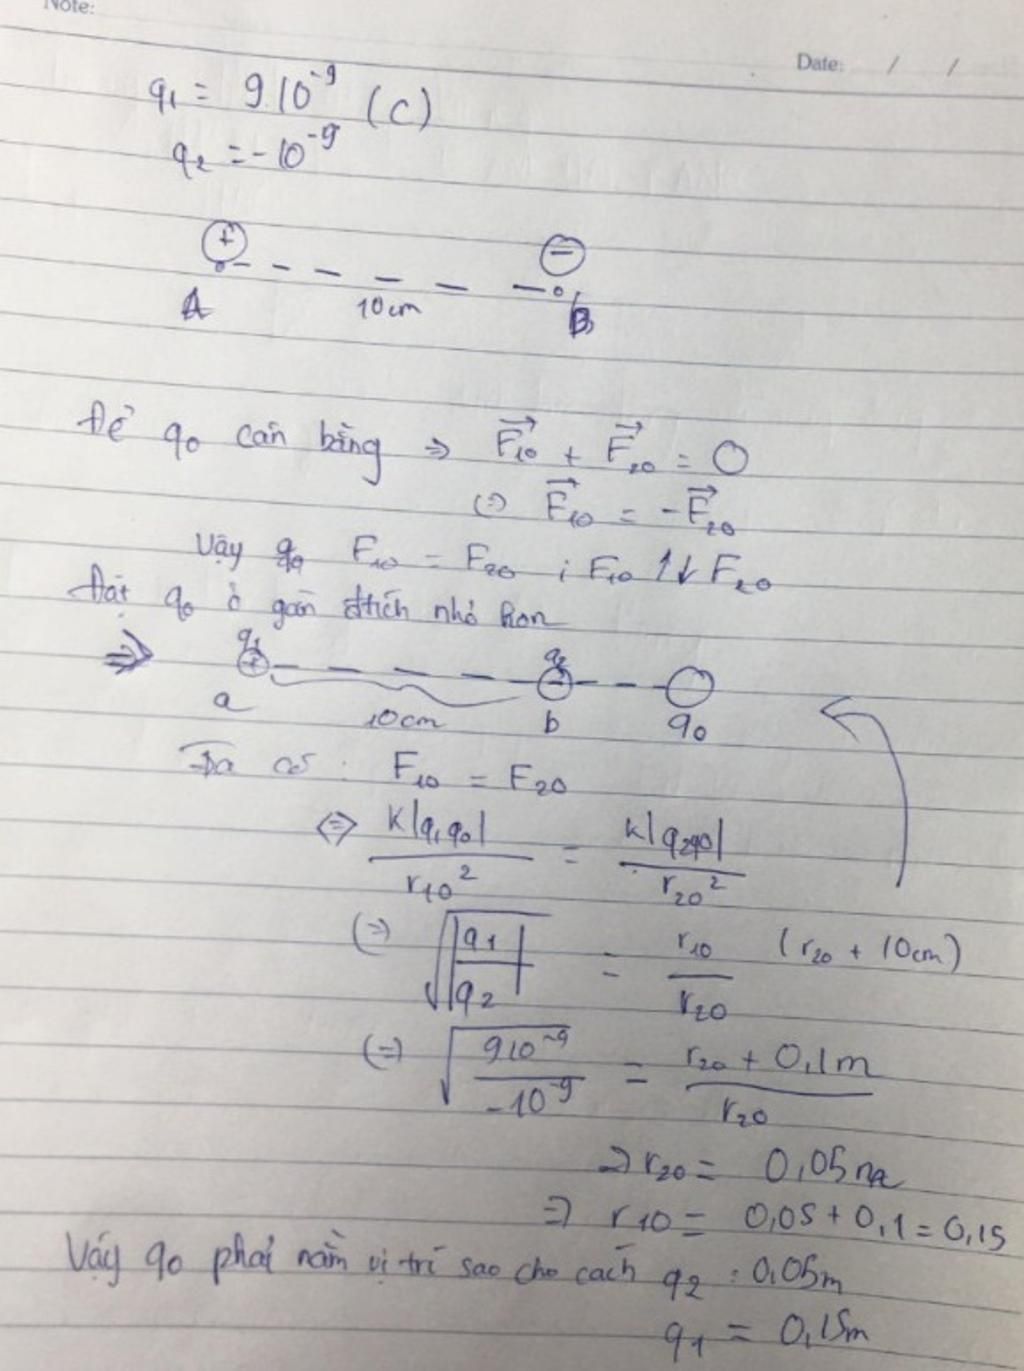 Note:
Date: / /
q₁ = 9.10⁻⁹ (C)
q₂ = -10⁻⁹
+ −
A 10cm B
Để q₀ cân bằng ⇒ F⃗₁₀ + F⃗₂₀ = 0
(=) F⃗₁₀ = -F⃗₂₀
Vậy F₁₀ = F₂₀ ; F₁₀ ↑↓ F₂₀
Đặt q₀ ở gần nhỏ hơn
⇒ q₁ + q₂ −
a 10cm b q₀
Ta có : F₁₀ = F₂₀
⇔ K|q₁q₀| / r₁₀² = k|q₂q₀| / r₂₀²
(=) √|q₁/q₂| = r₁₀/r₂₀ (r₂₀ + 10cm)
(=) √(9.10⁻⁹ / -10⁻⁹) = (r₂₀ + 0,1m) / r₂₀
⇒ r₂₀ = 0,05m
⇒ r₁₀ = 0,05 + 0,1 = 0,15
Vậy q₀ phải nằm vị trí sao cho cách q₂ : 0,05m
q₁ = 0,15m